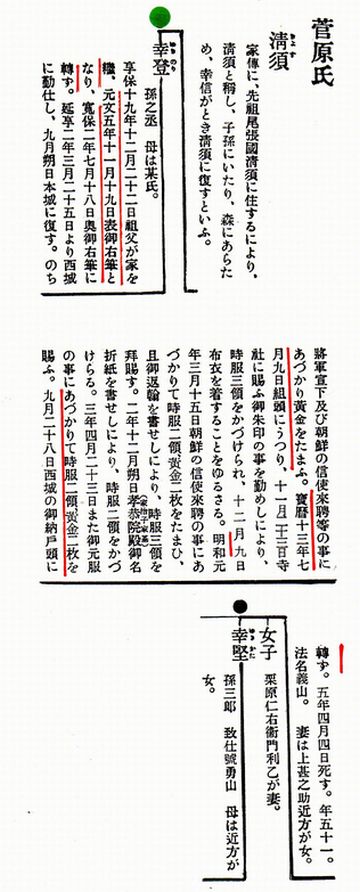 菅原氏
淸須
家傳に、先祖尾張國淸須に住するにより、
淸須と稱し、子孫にいたり、森にあらた
め、幸信がとき淸須に復すといふ。
幸登
孫之丞 母は某氏。
享保十九年十二月二十二日祖父が家を
繼、元文五年十一月十九日表御右筆と
なり、寬保二年七月十八日奧御右筆に
轉ず。延享二年三月二十五日より西城
に勤仕し、九月朔日本城に復す。のち
將軍宣下及び朝鮮の信使來聘等の事に
あづかり黃金をたまふ。寶曆十三年七
月九日組頭にうつり、十一月二十三日寺
社に賜ふ御朱印の事を勤めしにより、
時服三領をかづけられ、十二月九日
布衣を着することをゆるさる。明和元
年三月十五日朝鮮の信使來聘の事にあ
づかりて時服二領黃金二枚をたまひ、
且御返翰を書せしにより、時服三領を
拜賜す。二年十二月朔日孝恭院殿御名
折紙を書せしにより、時服二領をかづ
けらる。三年四月二十三日また御元服
の事にあづかりて時服二領黃金二枚を
賜ふ。九月二十八日西城の御納戶頭に
轉ず。五年四月四日死す。年五十一。
法名義山。 妻は上甚之助近方が女。
女子
栗原仁右衞門利乙が妻。
幸堅
孫三郞 致仕號勇山 母は近方が
女。